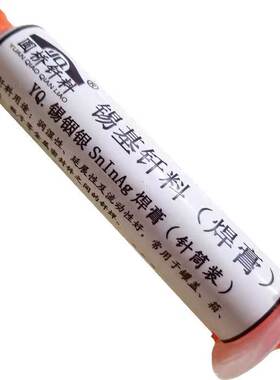 YQ
®
圆桥钎料
YUAN QIAO QIAN LIAO
锡基钎料（焊膏）
YQ.锡铟银 SnInAg 焊膏（针筒装）
润湿性、延展性及流动性好。常用于罐盖、箱、